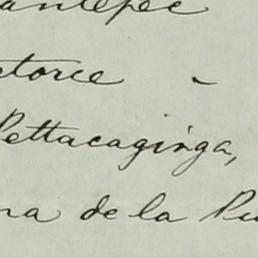 antepec
etorce -
Pettacaginga,
na de la Pu